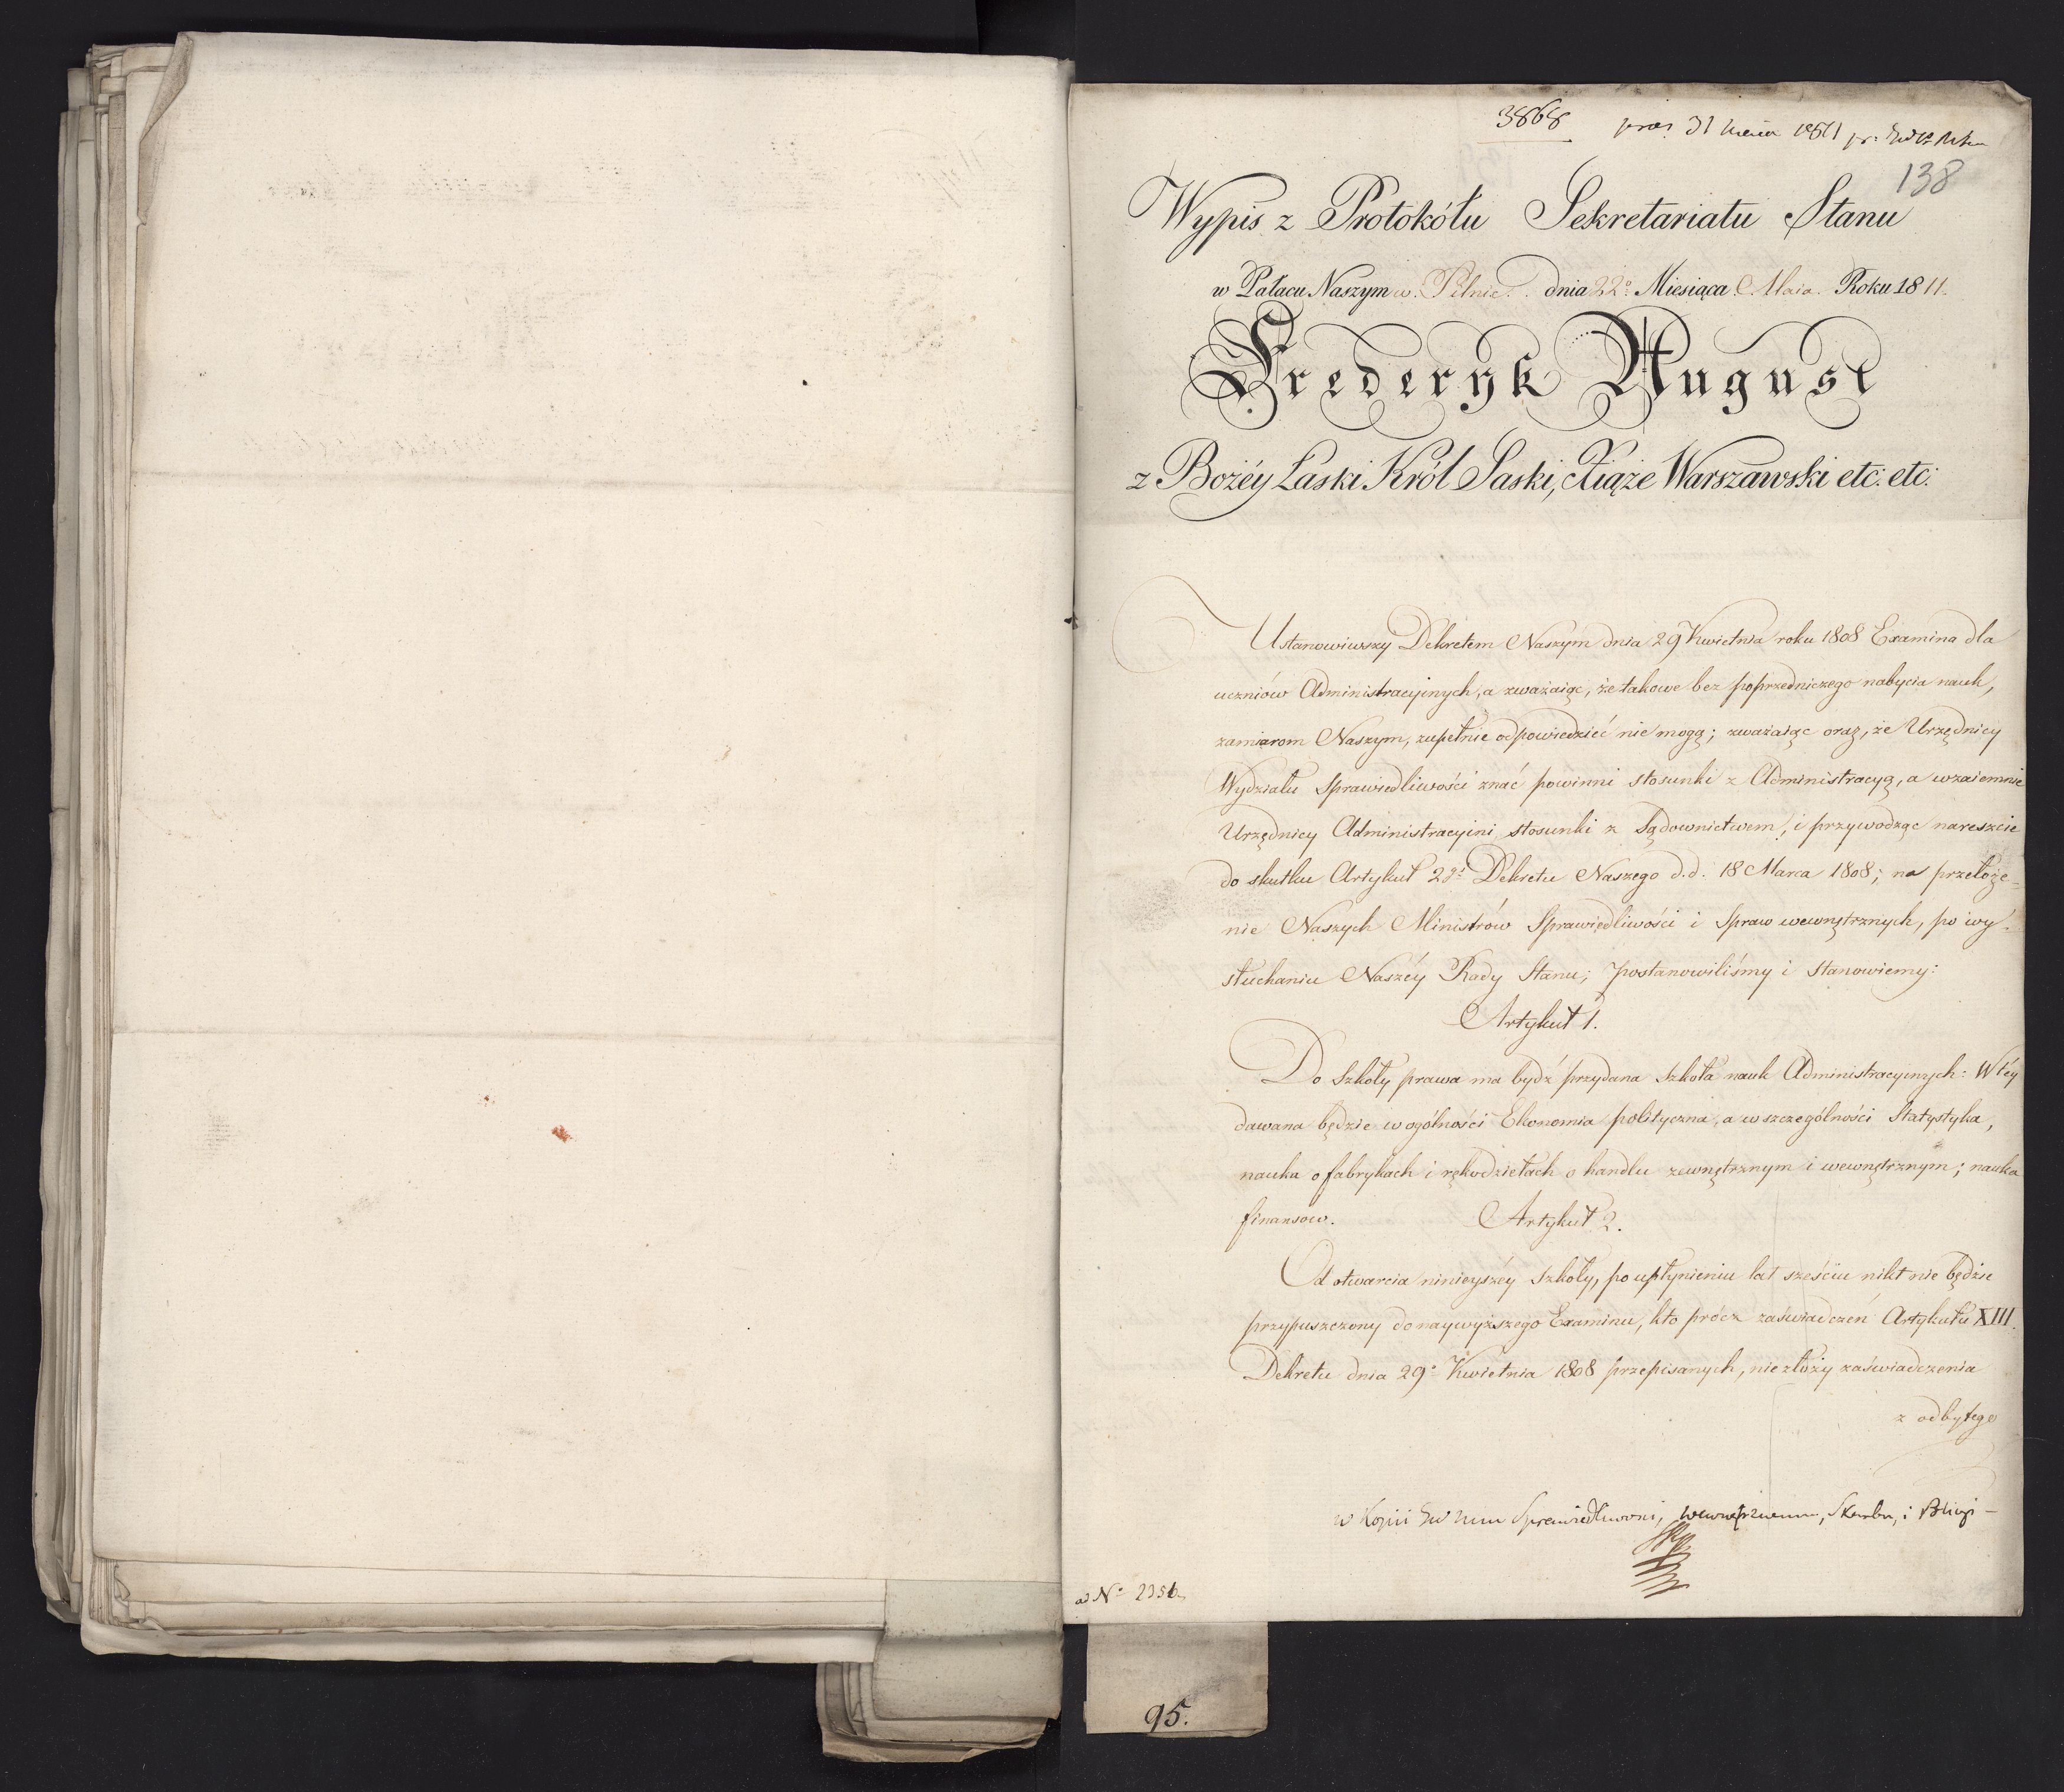 3868 praes 31 1811
138
Wypis z Protokółu Sekretariatu Stanu
w Pałacu Naszym w. Pilnic. dnia 22º Miesiąca Maia. Roku 1811.
Frederyk August
z Bożéy Łaski Król Saski, Xiąże Warszawski etc: etc:
Ustanowiwszy Dekretem Naszym dnia 29 Kwietnia roku 1808 Examina dla
uczniów Administracyinych, a zważaiąc, że takowe bez poprzedniczego nabycia nauk,
zamiarom Naszym, zupełnie odpowiedzieć nie mogą; zważaiąc oraz, że Urzędnicy
Wydziału Sprawiedliwości znać powinni stosunki z Administracyą, a wzaiemnie
Urzędnicy Administracyini stosunki z Sądownictwem, i przywodząc nareszcie
do skutku Artykuł Dekretu Naszego d.d. 18 Marca 1808; na przełoże-
nie Naszych Ministrów Sprawiedliwości i Spraw wewnętrznych, po wy-
słuchaniu Naszéy Rady Stanu; postanowiliśmy i stanowiemy:
Artykuł 1.
Do Szkoły prawa ma bydź przydana Szkoła nauk Administracyinych: W téy
dawana będzie w ogólności Ekonomia polityczna, a w szczególności Statystyka,
nauka o fabrykach i rękodziełach o handlu zewnętrznym i wewnętrznym; nauka
finansow.
Artykuł 2.
Od otwarcia ninieyszey Szkoły, po upłynieniu lat sześciu nikt nie będzie
przypuszczony do naywyższego Examinu, kto prócz zaświadczeń Artykułu XIII.
Dekretu dnia 29º Kwietnia 1808 przepisanych, nie złoży zaświadczenia
z odbytego
w Kopii Sprawiedliwości, wewnętrznemu, Skarbu, i
ad Nº 2356
95.